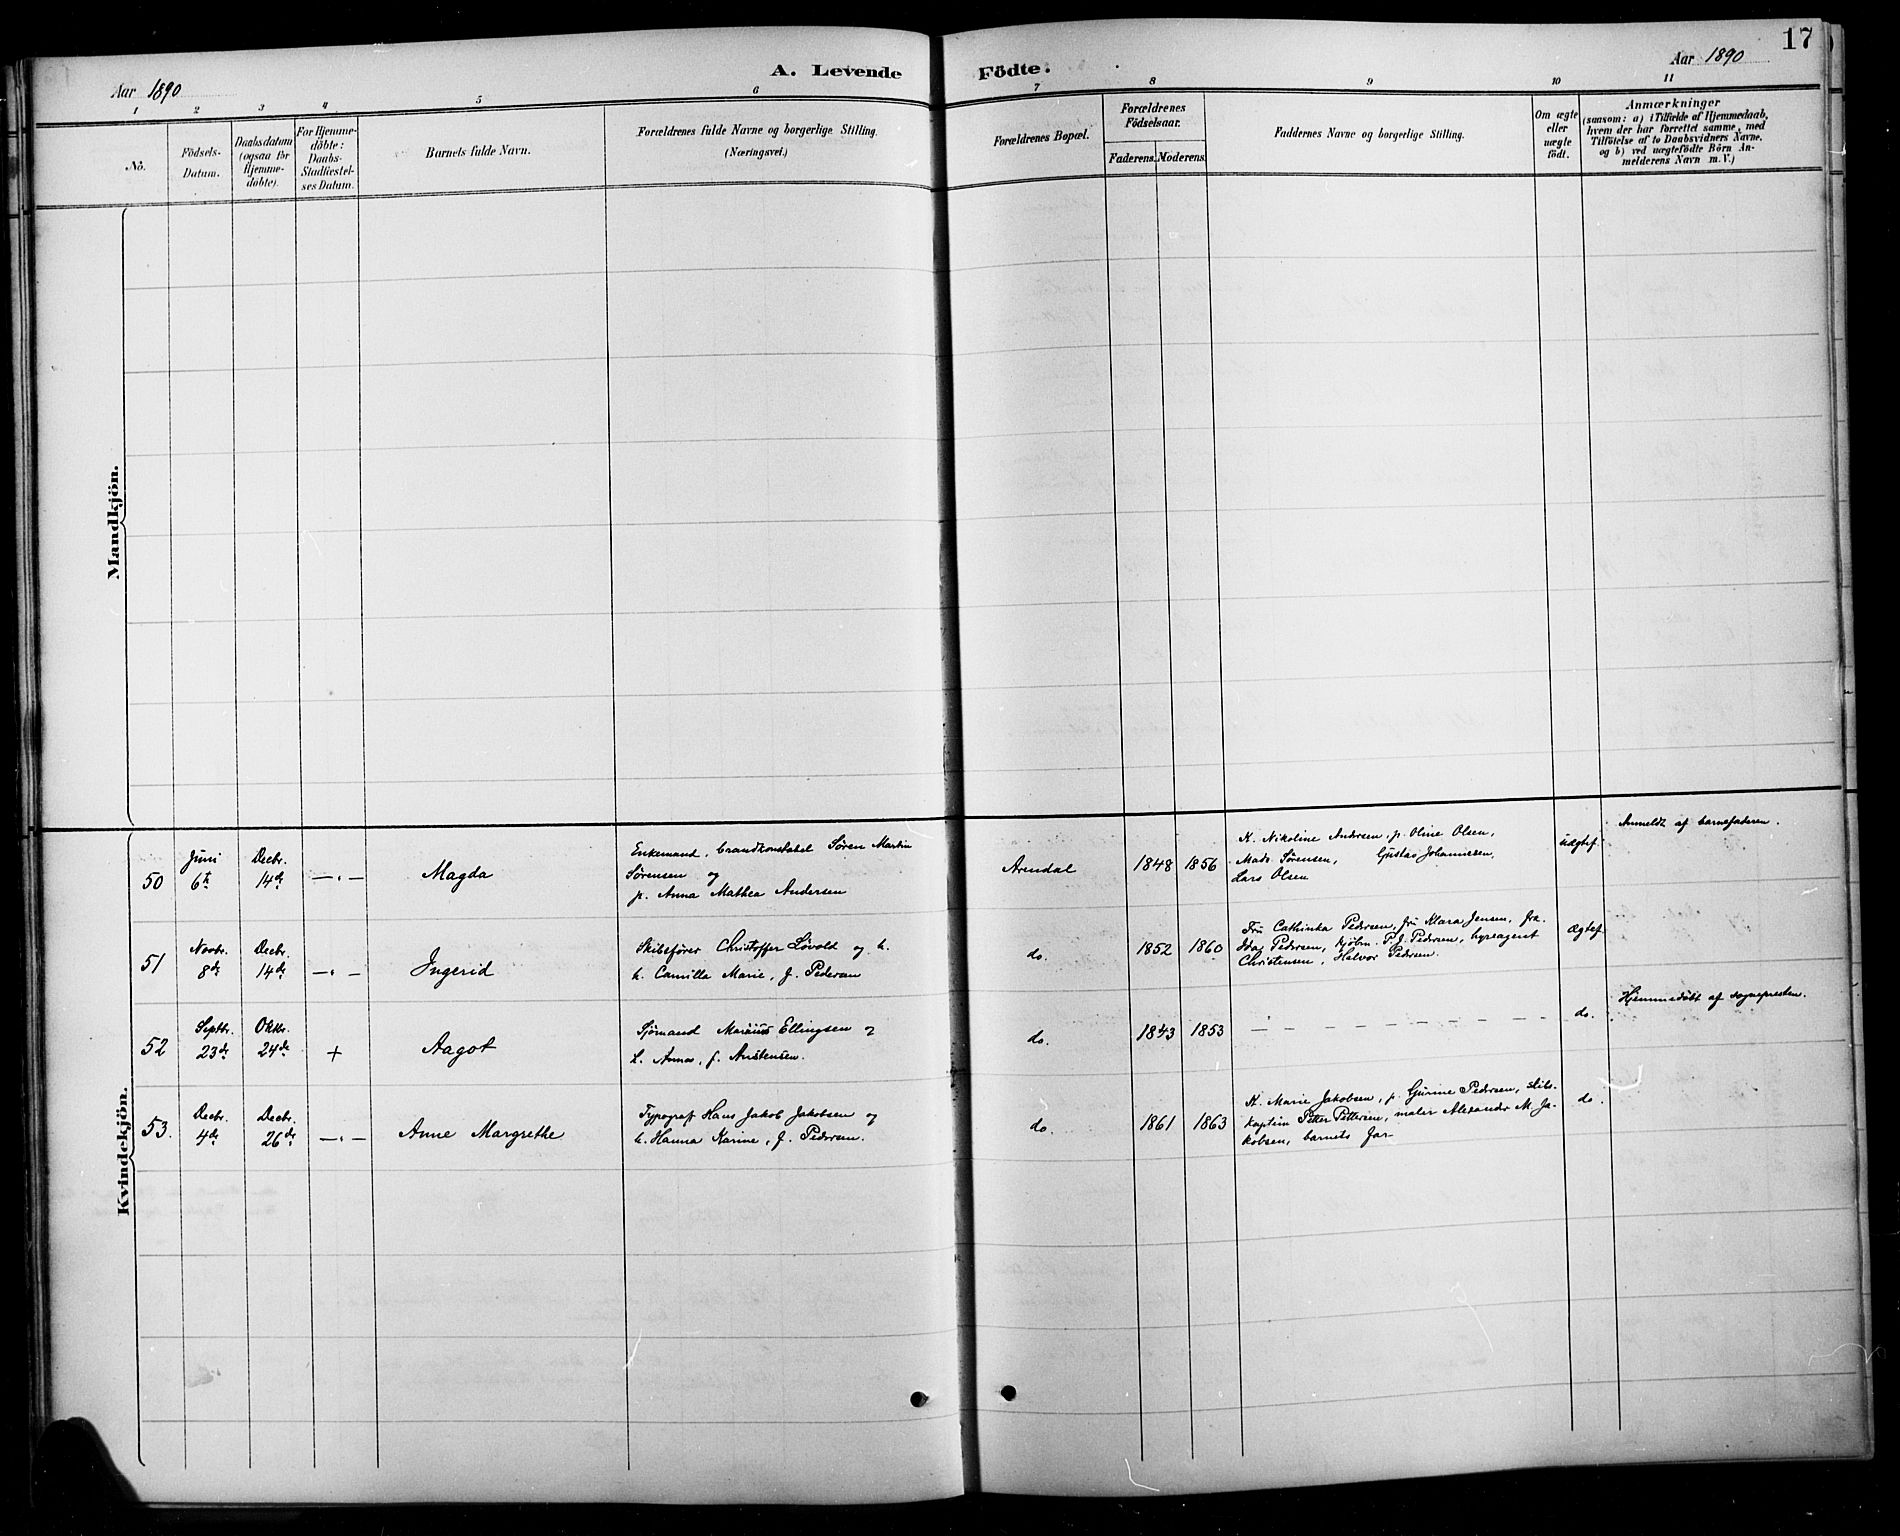 17
Aar 1890
A. Levende Födte.
Aar 1890
1 2 3 4 5 6 7 8 9 10 11
No.
Födsels-
Datum.
Daabsdatum
(ogsaa for
Hjemme-
döbte).
For Hjemme-
döbte:
Daabs-
Stadfæstel-
ses Datum.
Barnets fulde Navn.
Forældrenes fulde Navne og borgerlige Stilling.
(Næringsvei.)
Forældrenes Bopæl.
Forældrenes
Födselsaar.
Faderens. Moderens.
Faddernes Navne og borgerlige Stilling.
Om ægte
eller
uægte
födt.
Anmærkninger
(saasom: a) i Tilfælde af Hjemmedaab,
hvem der har forrettet samme, med
Tilföielse af to Daabsvidners Navne,
og b) ved uægtefödte Börn An-
melderens Navn m. V.)
Mandkjön.
Kvindekjön.
50
Juni
6te
Decbr.
14de
— " —
Magda
Enkemand, brandkonstabel Søren Martin
Sørensen og
p. Anna Mathea Andersen
Arendal
1848 1856
K. Nikoline Andersen, p. Oline Olsen,
Mads Sørensen, Gustav Johannesen,
Lars Olsen
uægtef.
Anmeldt af barnefaderen.
51
Novbr.
8de
Decbr.
14de
— " —
Ingerid
Skibsfører Christoffer Løvold og h.
h. Camilla Marie, f. Pedersen
do.
1852 1860
Fru Cathinka Pedersen, fru Klara Jensen, frk.
Ida Pedersen, kjøbm. P. J. Pedersen, hyreagent
Christensen, Halvor Pedersen.
Ægtef.
52
Septbr.
23de
Oktbr.
24de
+
Aagot
Sjømand Marius Ellingsen og
h. Anna, f. Austensen.
do.
1843 1853
— — — — — — — — —
do.
Hjemmedøbt af sognepresten.
53.
Decbr.
4de
Decbr.
26de
— " —
Anne Margrethe
Typograf Hans Jakob Jakobsen og
h. Hanna Karine, f. Pedersen.
do.
1861 1863
K. Marie Jakobsen, p. Gurine Pedersen, skibs-
kaptein Peter Pettersen, maler Alexander M. Ja-
kobsen, barnets far
do.